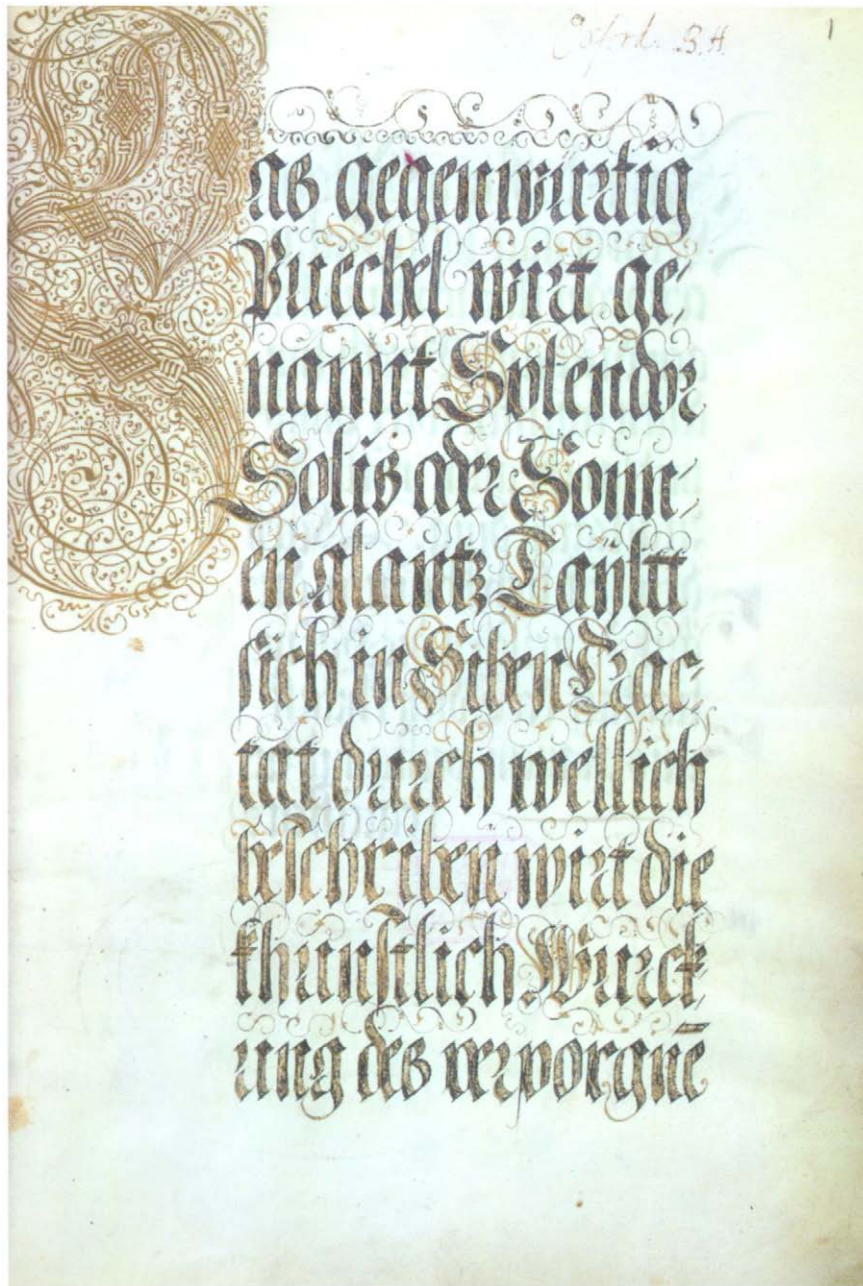 Oxford. B.H.
1
Das gegenwürtig
Puechel wirt ge-
nannt Splendor
Solis oder Sonn-
en glantz Taÿltt
sich in Siben Trac-
tat durch wellich
beschriben wirt die
khunstlich Wurck-
ung des verporgnē